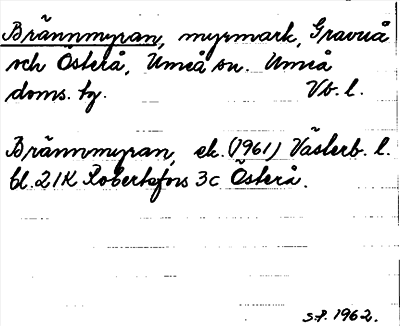 Brännmyran, myrmark, Gravnå
och Österå, Umeå sn. Umeå
doms. tg. Vb. l.
Brännmyran, ek. (1961) Västerb. l.
bl. 21K Robertsfors 3c Österå.
S.P. 1962.